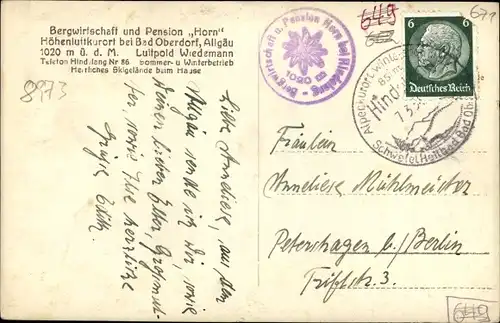 Bergwirtschaft und Pension „Horn"
Höhenluftkurort bei Bad Oberdorf, Allgäu
1020 m ü. d. M. Luitpold Wiedemann
Telefon Hindelang Nr 86 Sommer- u Winterbetrieb
Herrliches Skigelände beim Hause
8973
Bergwirtschaft u. Pension Horn bei Hindelang
1020 m
649
671
6 6
Deutsches Reich
Hind
7.3.3
Schwefel Heilbad Bad Ob
Liebe Anneliese, aus dem
Allgäu sende ich Dir, sowie
Deinen lieben Eltern, Grossmut-
ter, sowie Ilse herzliche
Grüße Edith.
Fräulein
Anneliese Mühlmeister
Petershagen b./Berlin
Triftstr. 3.
649